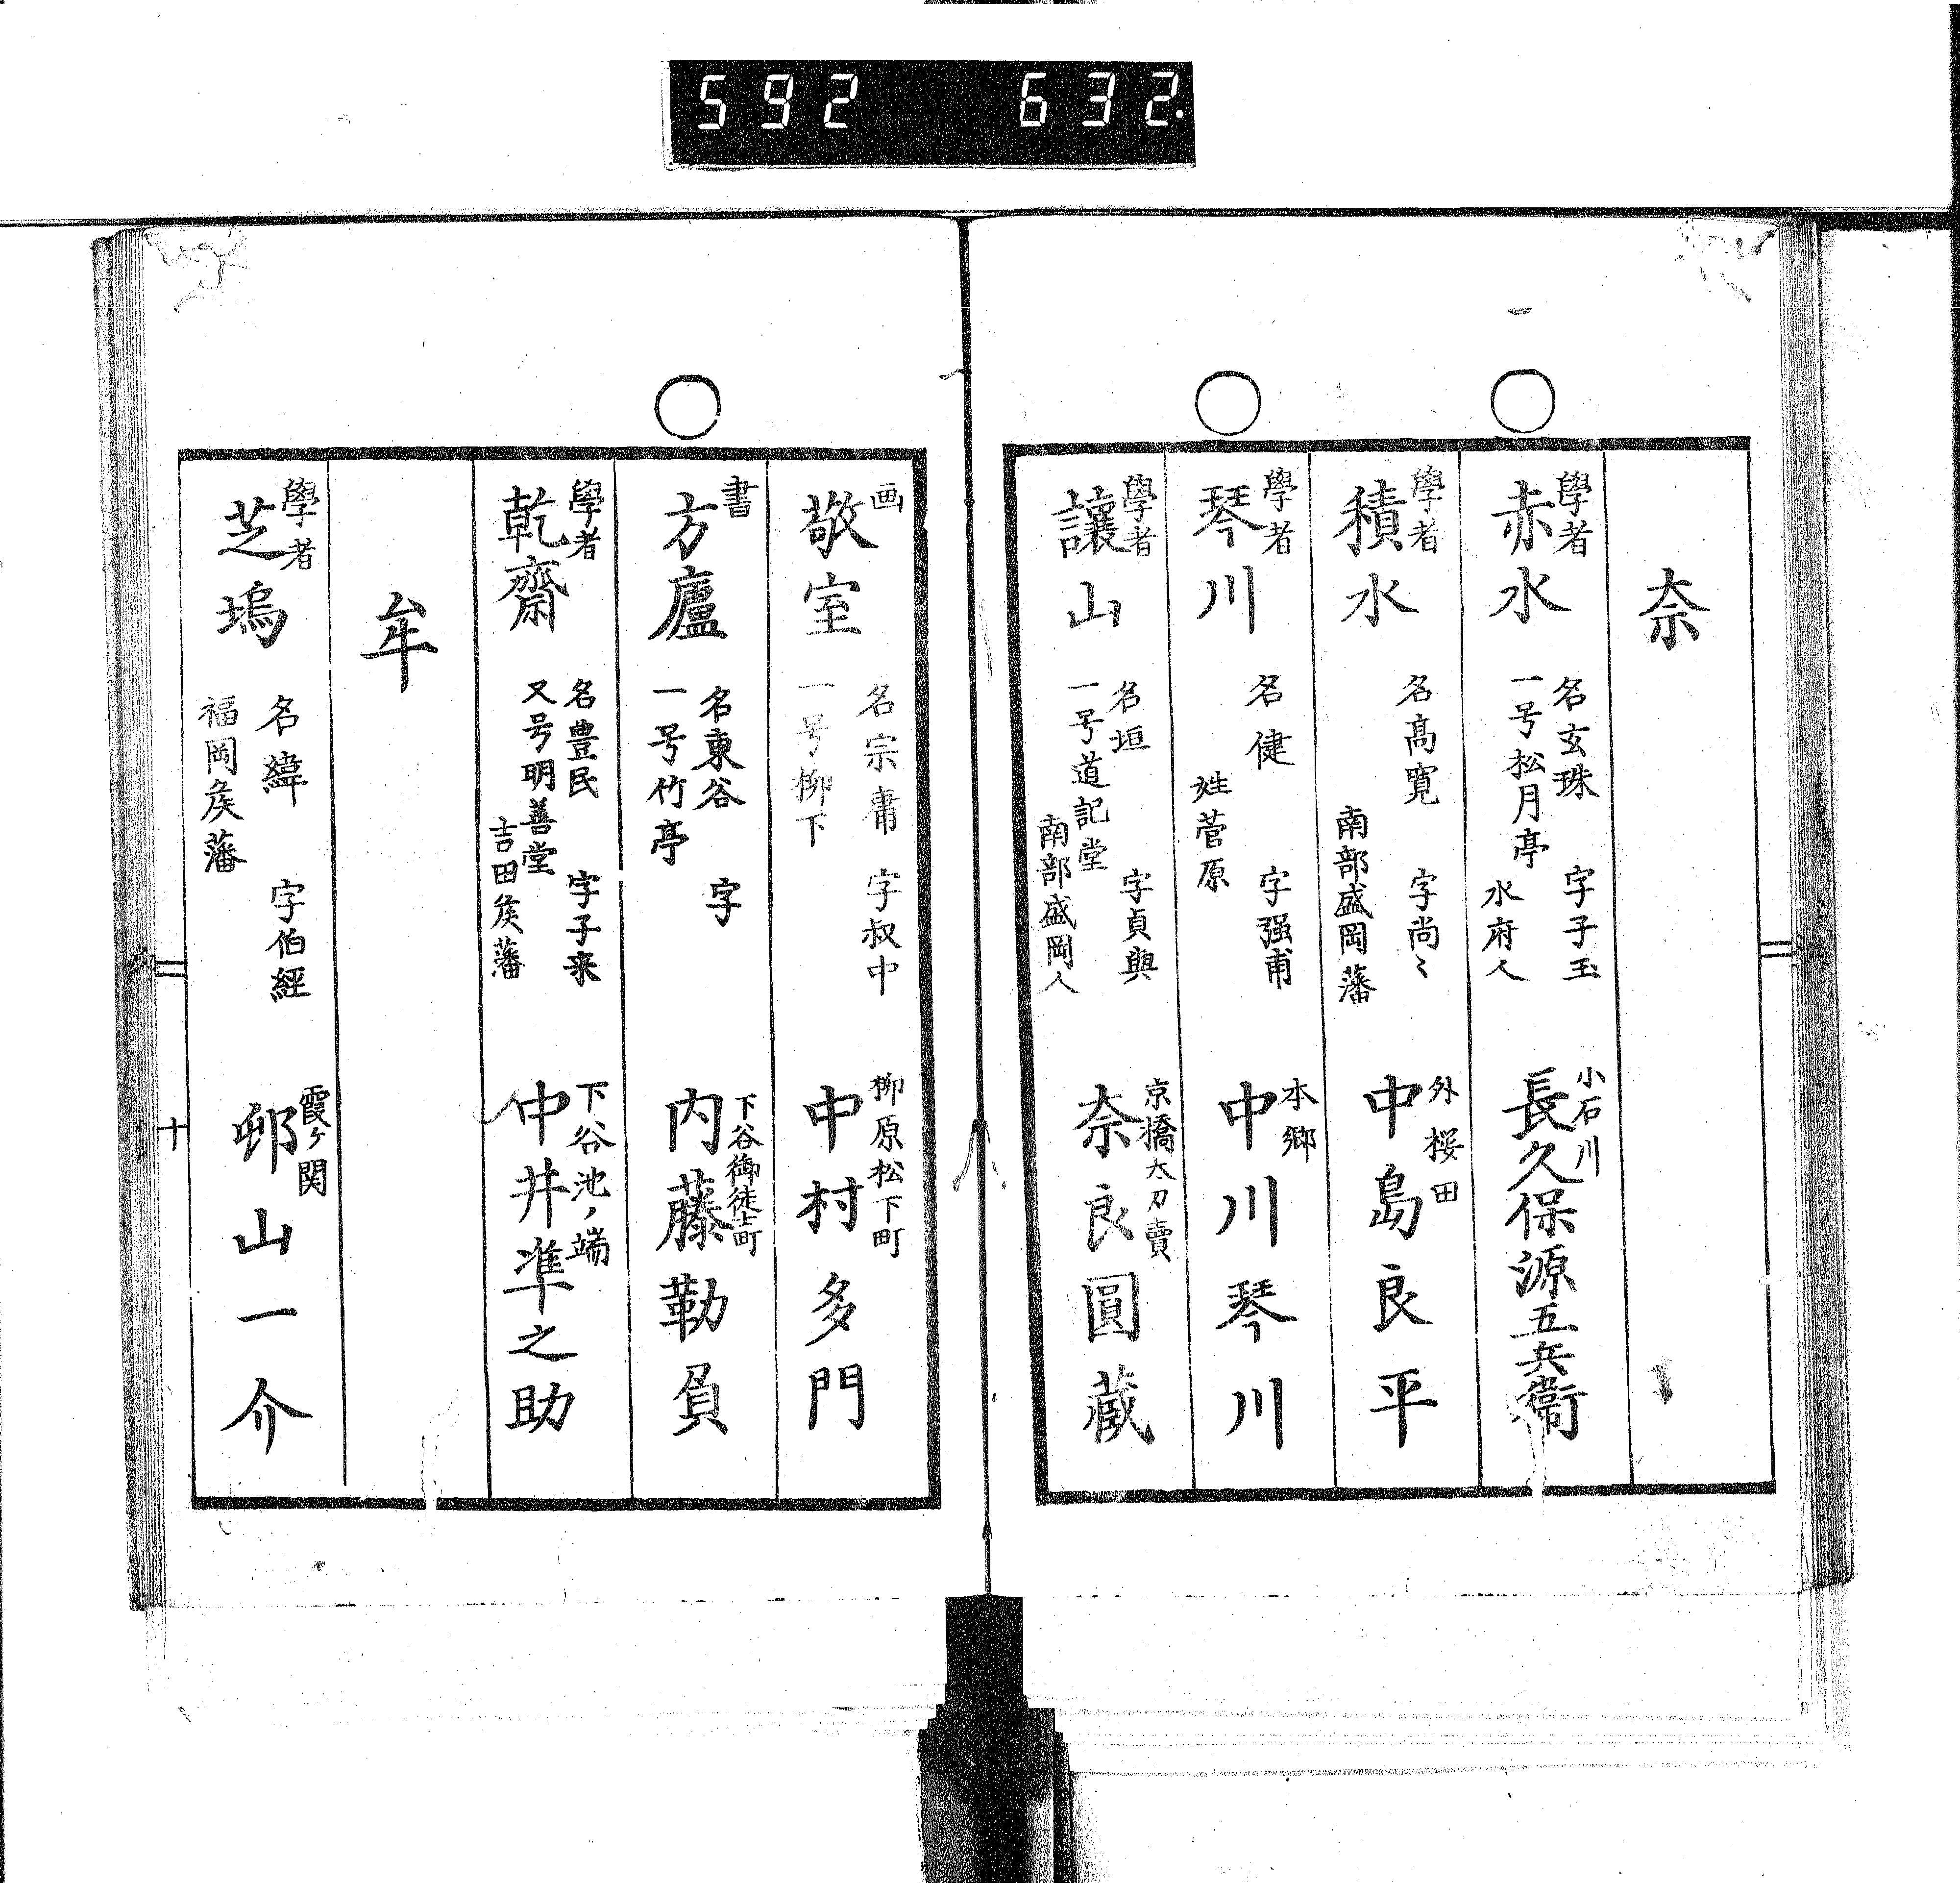 592 632.
奈
學者
赤水
名玄珠 字子玉
一号松月亭
水府人
小石川
長久保源五兵衛
學者
積水
名髙寛 字尚〻
南部盛岡藩
外桜田
中島良平
學者
琴川
名健 字强甫
姓菅原
本郷
中川琴川
學者
讓山
名垣 字貞與
一号道記堂
南部盛岡人
京橋太刀賣
奈良圓藏
画
敬室
名宗庸 字叔中
一号柳下
柳原松下町
中村多門
書
方廬
名東谷 字
一号竹亭
下谷御徒士町
内藤勒負
學者
乾齋
名豊民 字子来
又号明善堂
吉田矦藩
下谷池ノ端
中井準之助
牟
學者
芝塢
名緯 字伯經
福岡矦藩
霞ヶ関
邨山一介
十